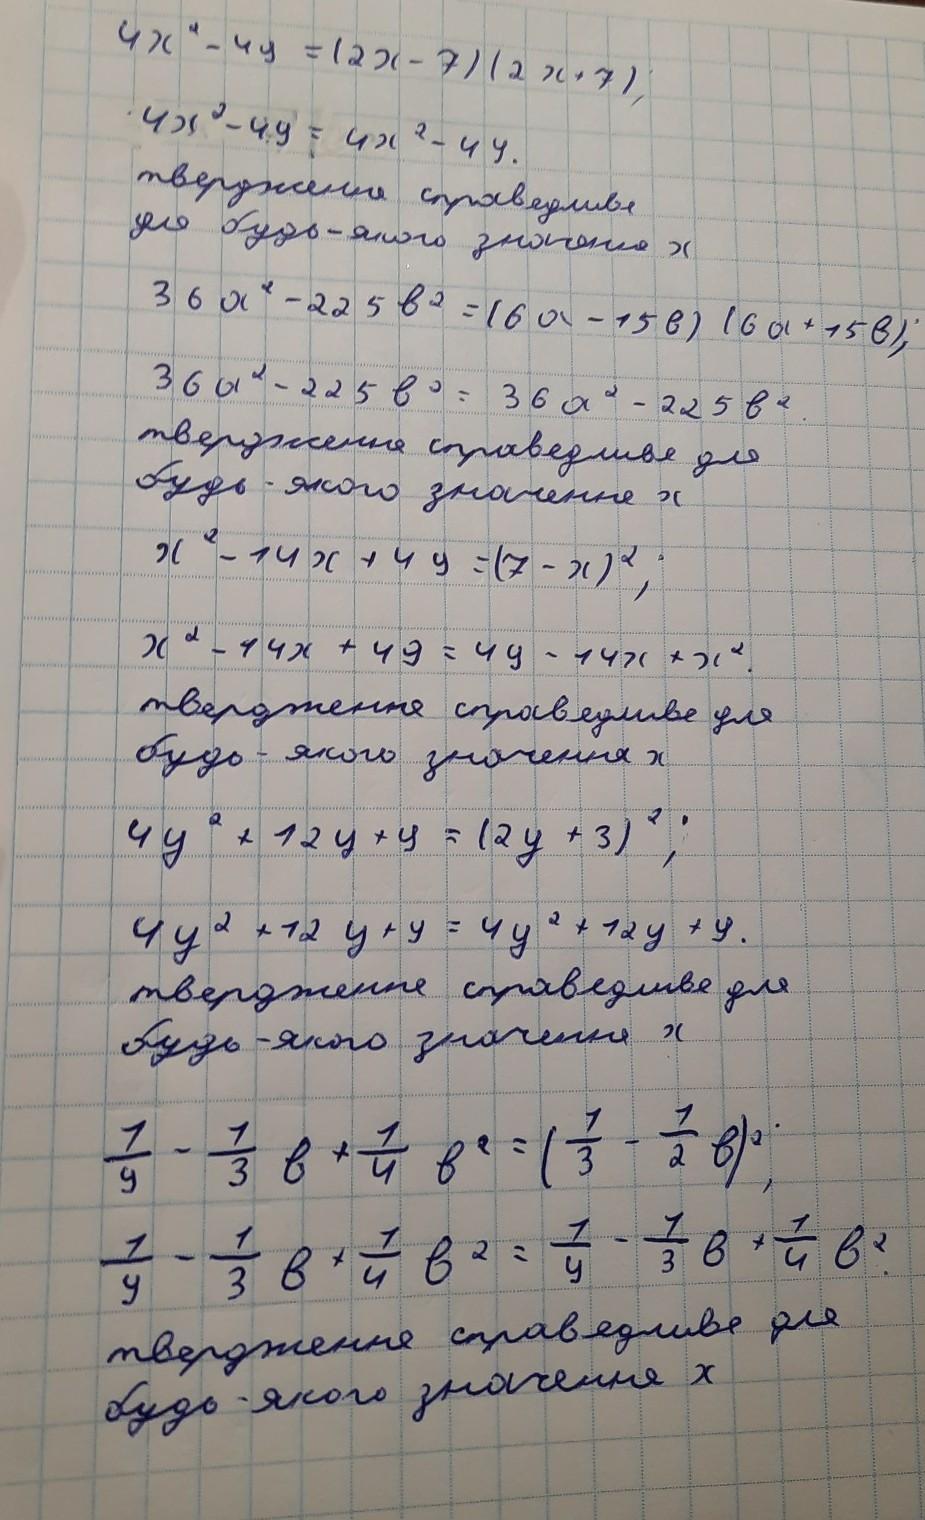 4x² - 49 = (2x - 7)(2x + 7);
4x² - 49 = 4x² - 49.
твердження справедливе
для будь-якого значення x
36a² - 225b² = (6a - 15b)(6a + 15b);
36a² - 225b² = 36a² - 225b².
твердження справедливе для
будь-якого значення x
x² - 14x + 49 = (7 - x)²;
x² - 14x + 49 = 49 - 14x + x².
твердження справедливе для
будь-якого значення x
4y² + 12y + 9 = (2y + 3)²;
4y² + 12y + 9 = 4y² + 12y + 9.
твердження справедливе для
будь-якого значення x
1/9 - 1/3 b + 1/4 b² = (1/3 - 1/2 b)²;
1/9 - 1/3 b + 1/4 b² = 1/9 - 1/3 b + 1/4 b².
твердження справедливе для
будь-якого значення x